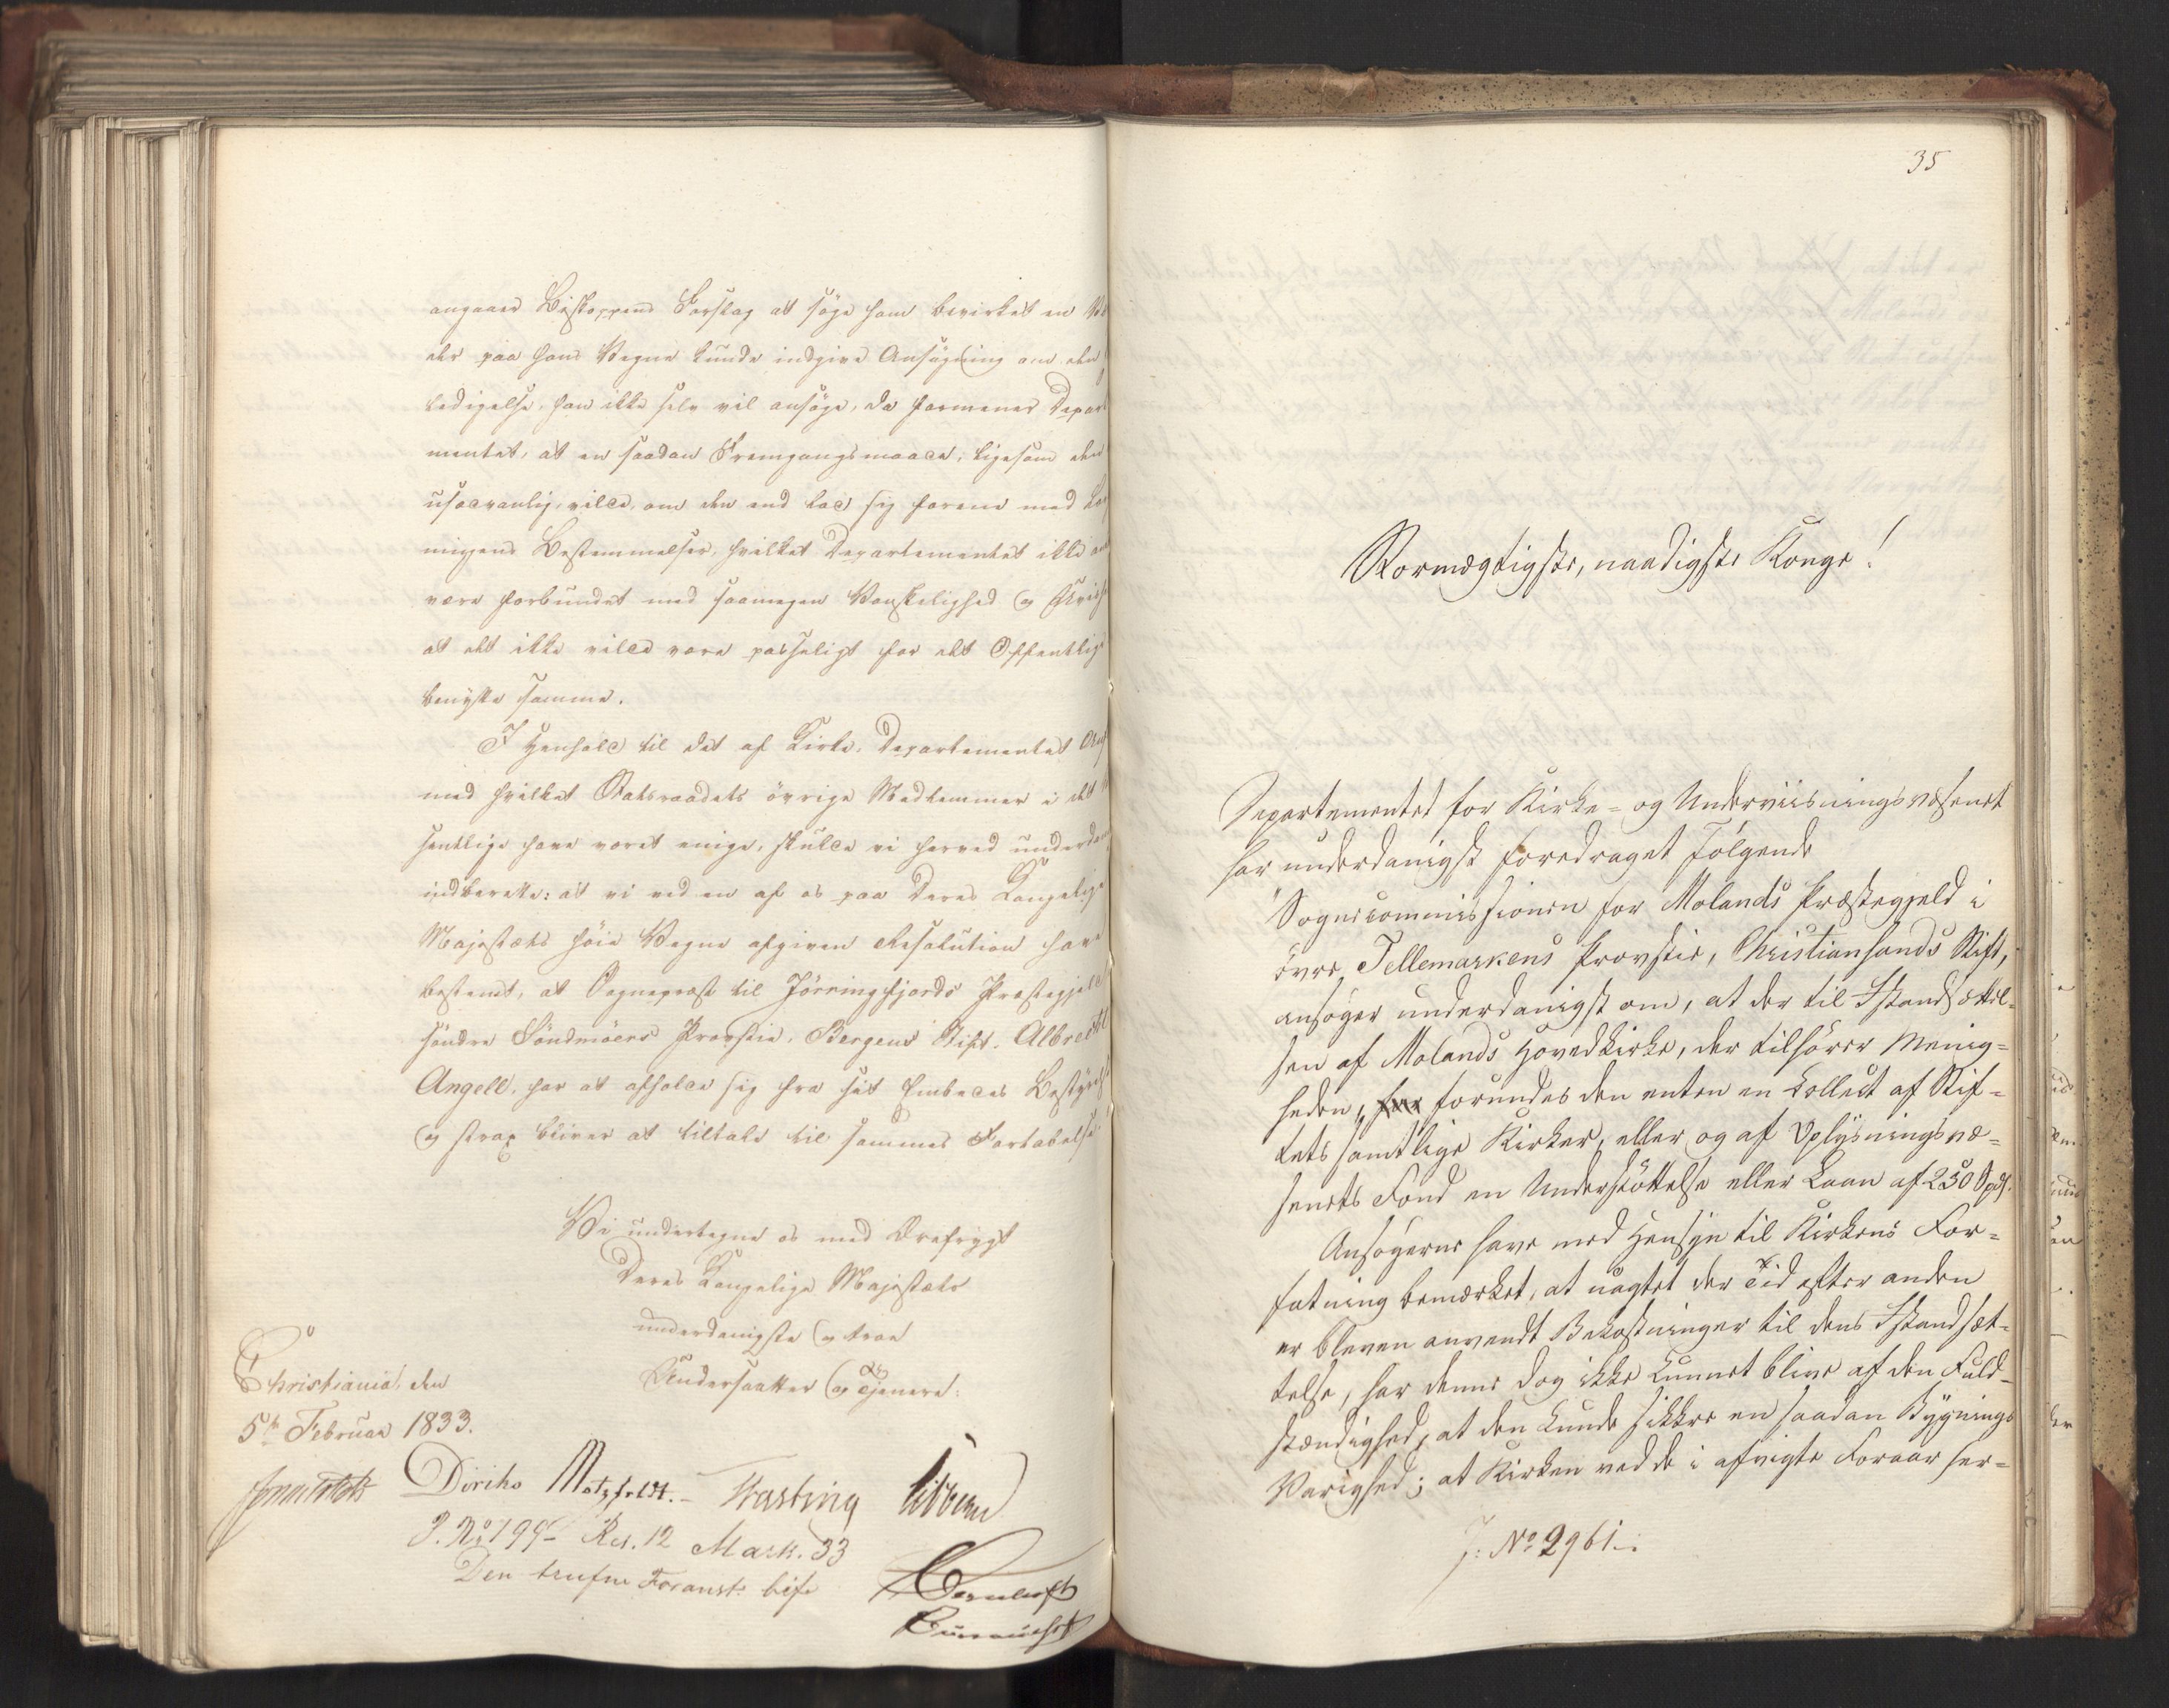 angaaer Biskoppens Forslag at søge ham bevirket en
der paa hans Vegne kunde indgive Ansøgning om den
ledigelse, han ikke selv vil ansøge, da formener Depart
mentet, at en saadan Fremgangsmaade, ligesom den
usædvanlig, vilde, om den end lod sig forene med
mingens Bestemmelser, hvilket Departementet ikke
være forbundet med saamegen Vanskelighed og
at det ikke vilde være passeligt for det Offentlige
benytte samme.
I Henhold til det af Kirke-Departementet
med hvilket Statsraadets övrige Medlemmer i det
sentlige have været enige, skulde vi herved underdan
indberette: at vi ved en af os paa Deres Kongelige
Majestæts höie Vegne afgiven Resolution have
bestemt, at Sognepræst til Jörringfjords Præstegjeld
söndre Söndmöers Provstie, Bergens Stift, Albrecht
Angell, har at afholde sig fra sit Embedes Bestyrelse
og strax bliver at tiltale til sammes Fortabelse.
Vi undertegne os med Ærefrygt
Deres Kongelige Majestæts
underdanigste og troe
Undersaatter og Tjenere:
Christiania, den
5te Februar 1833.
Diriks Motzfeldt. Fasting Sibbern
J. No 199 Res. 12 Mark. 33
Den trufne Foranst. bif.
35
Stormægtigste, naadigste Konge!
Departementet for Kirke- og Underviisningsvæsenet
har underdanigst foredraget Følgende
"Sognecommissionen for Molands Præstegjeld i
övre Tellemarkens Provstie, Christiansands Stift,
ansøger underdanigst om, at der til Istandsættel-
sen af Molands Hovedkirke, der tilhører Menig-
heden, forundes den enten en Collect af Stif-
tets samtlige Kirker, eller og af Oplysningsvæ-
senets Fond en Understöttelse eller Laan af 250 Spd.
Ansøgerne have med Hensyn til Kirkens For-
fatning bemærket, at uagtet der Tid efter anden
er bleven anvendt Bekostninger til dens Istandsæt-
telse, har denne dog ikke kunnet blive af den Fuld-
stændighed, at den kunde sikkre en saadan Bygnings
Varighed; at Kirken ved de i afvigte Foraar her-
J: No 2961.